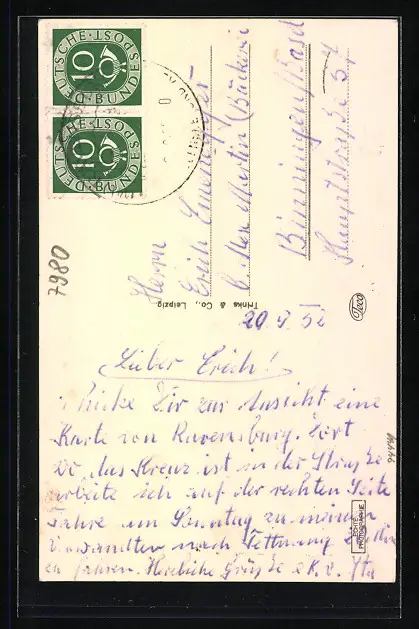 DEUTSCHE·BUNDESPOST
10
DEUTSCHE·BUNDESPOST
10
7980
Herrn
Erich
b. Max Martin (Bäckerei
Binningen/Basel
Hauptstraße 34
Trinks & Co., Leipzig
Teco
20. 9. 52
Lieber Erich!
Schicke Dir zur Ansicht eine
Karte von Ravensburg. Dort
wo das Kreuz ist in der Straße
arbeite ich auf der rechten Seite
Fahre am Sonntag zu meinen
Verwandten nach Tettnang
fahren. Herzliche Grüße
ECHTE PHOTOGRAPHIE